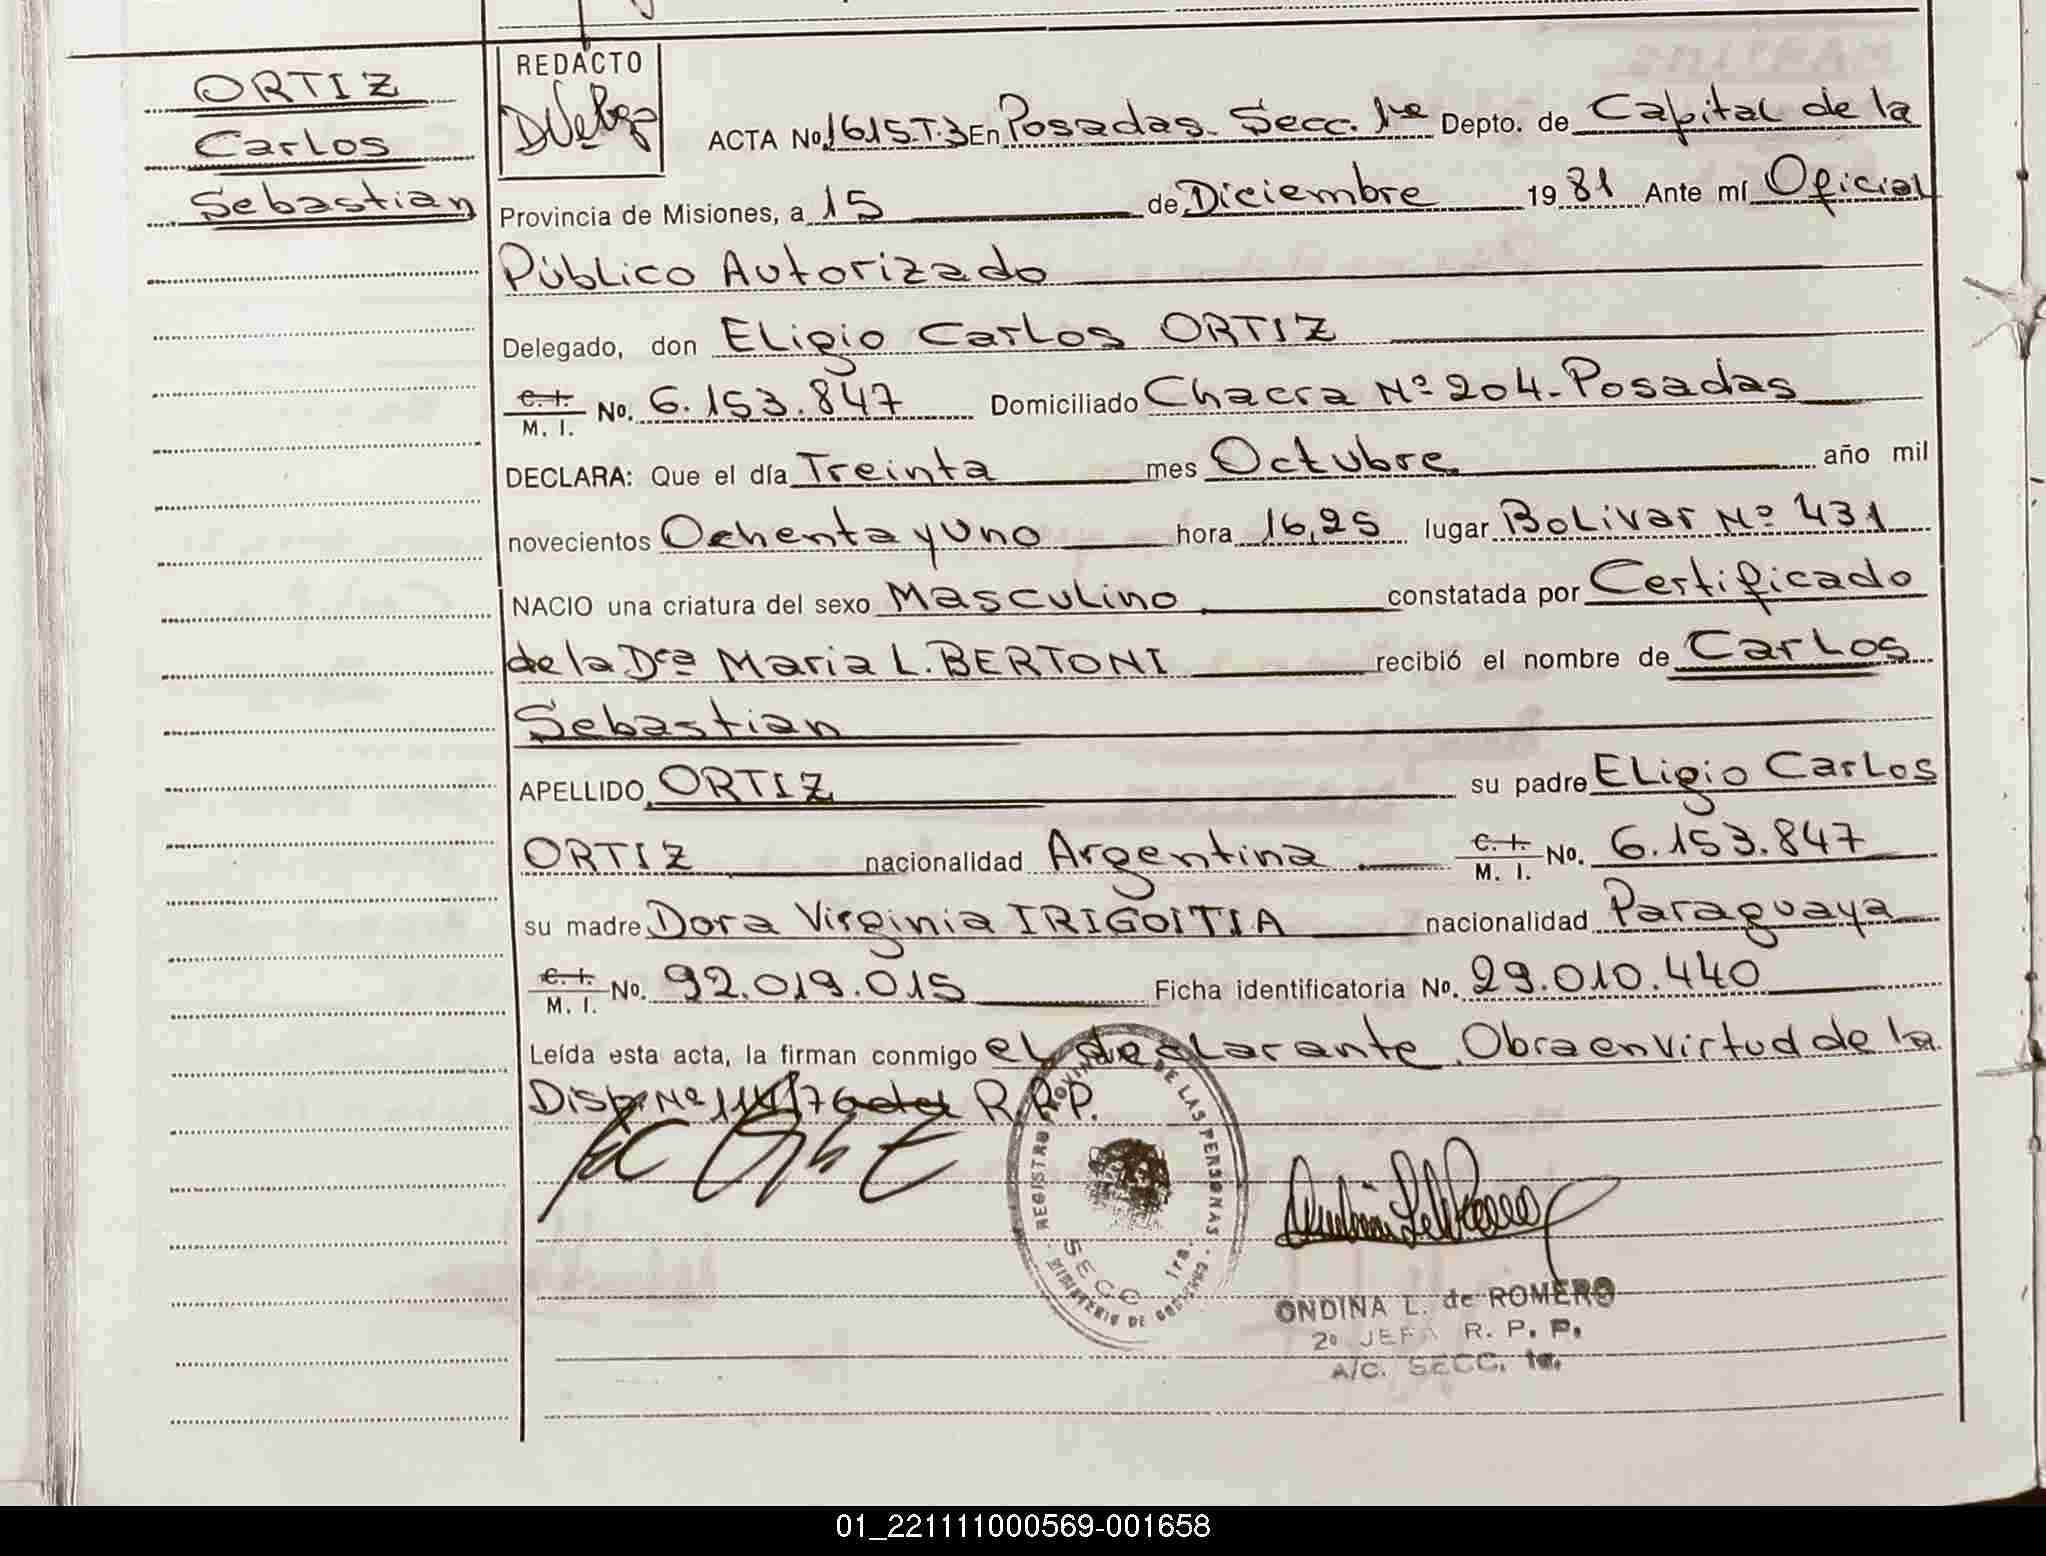 ORTIZ
Carlos
Sebastian
REDACTO
ACTA No. 1615.T.3 En Posadas. Secc. 1ra Depto. de Capital de la
Provincia de Misiones, a 15 de Diciembre 1981 Ante mí Oficial
Público Autorizado
Delegado, don Eligio Carlos ORTIZ
C. I.
M. I. No. 6.153.847 Domiciliado Chacra Nº 204-Posadas
DECLARA: Que el día Treinta mes Octubre año mil
novecientos Ochenta y Uno hora 16,25 lugar Bolivar Nº 431
NACIO una criatura del sexo Masculino constatada por Certificado
de la Dra Maria L. BERTONI recibió el nombre de Carlos
Sebastian
APELLIDO ORTIZ su padre Eligio Carlos
ORTIZ nacionalidad Argentina C. I.
M. I. No. 6.153.847
su madre Dora Virginia IRIGOITIA nacionalidad Paraguaya
C. I.
M. I. No. 92.019.015 Ficha identificatoria No. 29.010.440
Leída esta acta, la firman conmigo el declarante. Obra en virtud de la
Disp. Nº 114/76 del R.P.P.
REGISTRO PROVINCIAL DE LAS PERSONAS
SECC 1ra.
MINISTERIO DE GOBIERNO
ONDINA L. de ROMERO
2º JEFA R. P. P.
A/C. SECC. 1a.
01_221111000569-001658